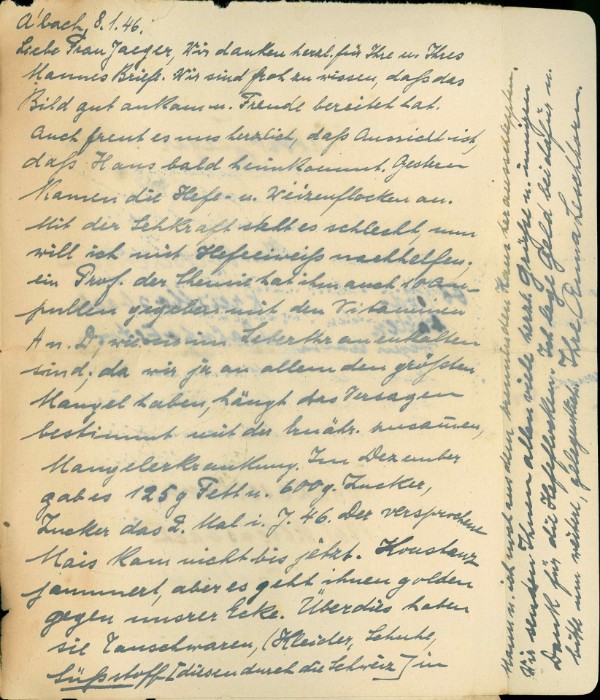 A'bach, 8.1.46.
Liebe Frau Jaeger, Wir danken herzl. für Ihre u. Ihres
Mannes Briefe. Wir sind froh zu wissen, daß das
Bild gut ankam u. Freude bereitet hat.
Auch freut es uns herzlich, daß Aussicht ist,
daß Hans bald heimkommt. Gestern
kamen die Hefe- u. Weizenflocken an.
Mit der Sehkraft steht es schlecht, nun
will ich mit Hefeeiweiß nachhelfen,
ein Prof. der Chemie hat ihm auch 10 Am-
pullen gegeben mit den Vitaminen
A u. D, wie sie im Lebertran enthalten
sind; da wir ja an allem den größten
Mangel haben, hängt das Versagen
bestimmt mit der Ernähr. zusammen,
Mangelerkrankung. Im Dezember
gab es 125 g Fett u. 600 g. Zucker,
Zucker das 2. Mal i. J. 46. Der versprochene
Mais kam nicht bis jetzt. Konstanz
jammert, aber es geht ihnen golden
gegen unsrer Ecke. Überdies haben
sie Tauschwaren, (Kleider, Schuhe,
Süßstoff [diesen durch die Schweiz] in
Mann u. ich uns aus dem Haus
Wir senden Ihnen allen viele herzl. Grüße u. innigen
Dank für die Hefeflocken. Ich lege Geld bei dafür u.
bitte um weitere, gelegentlich. Ihre